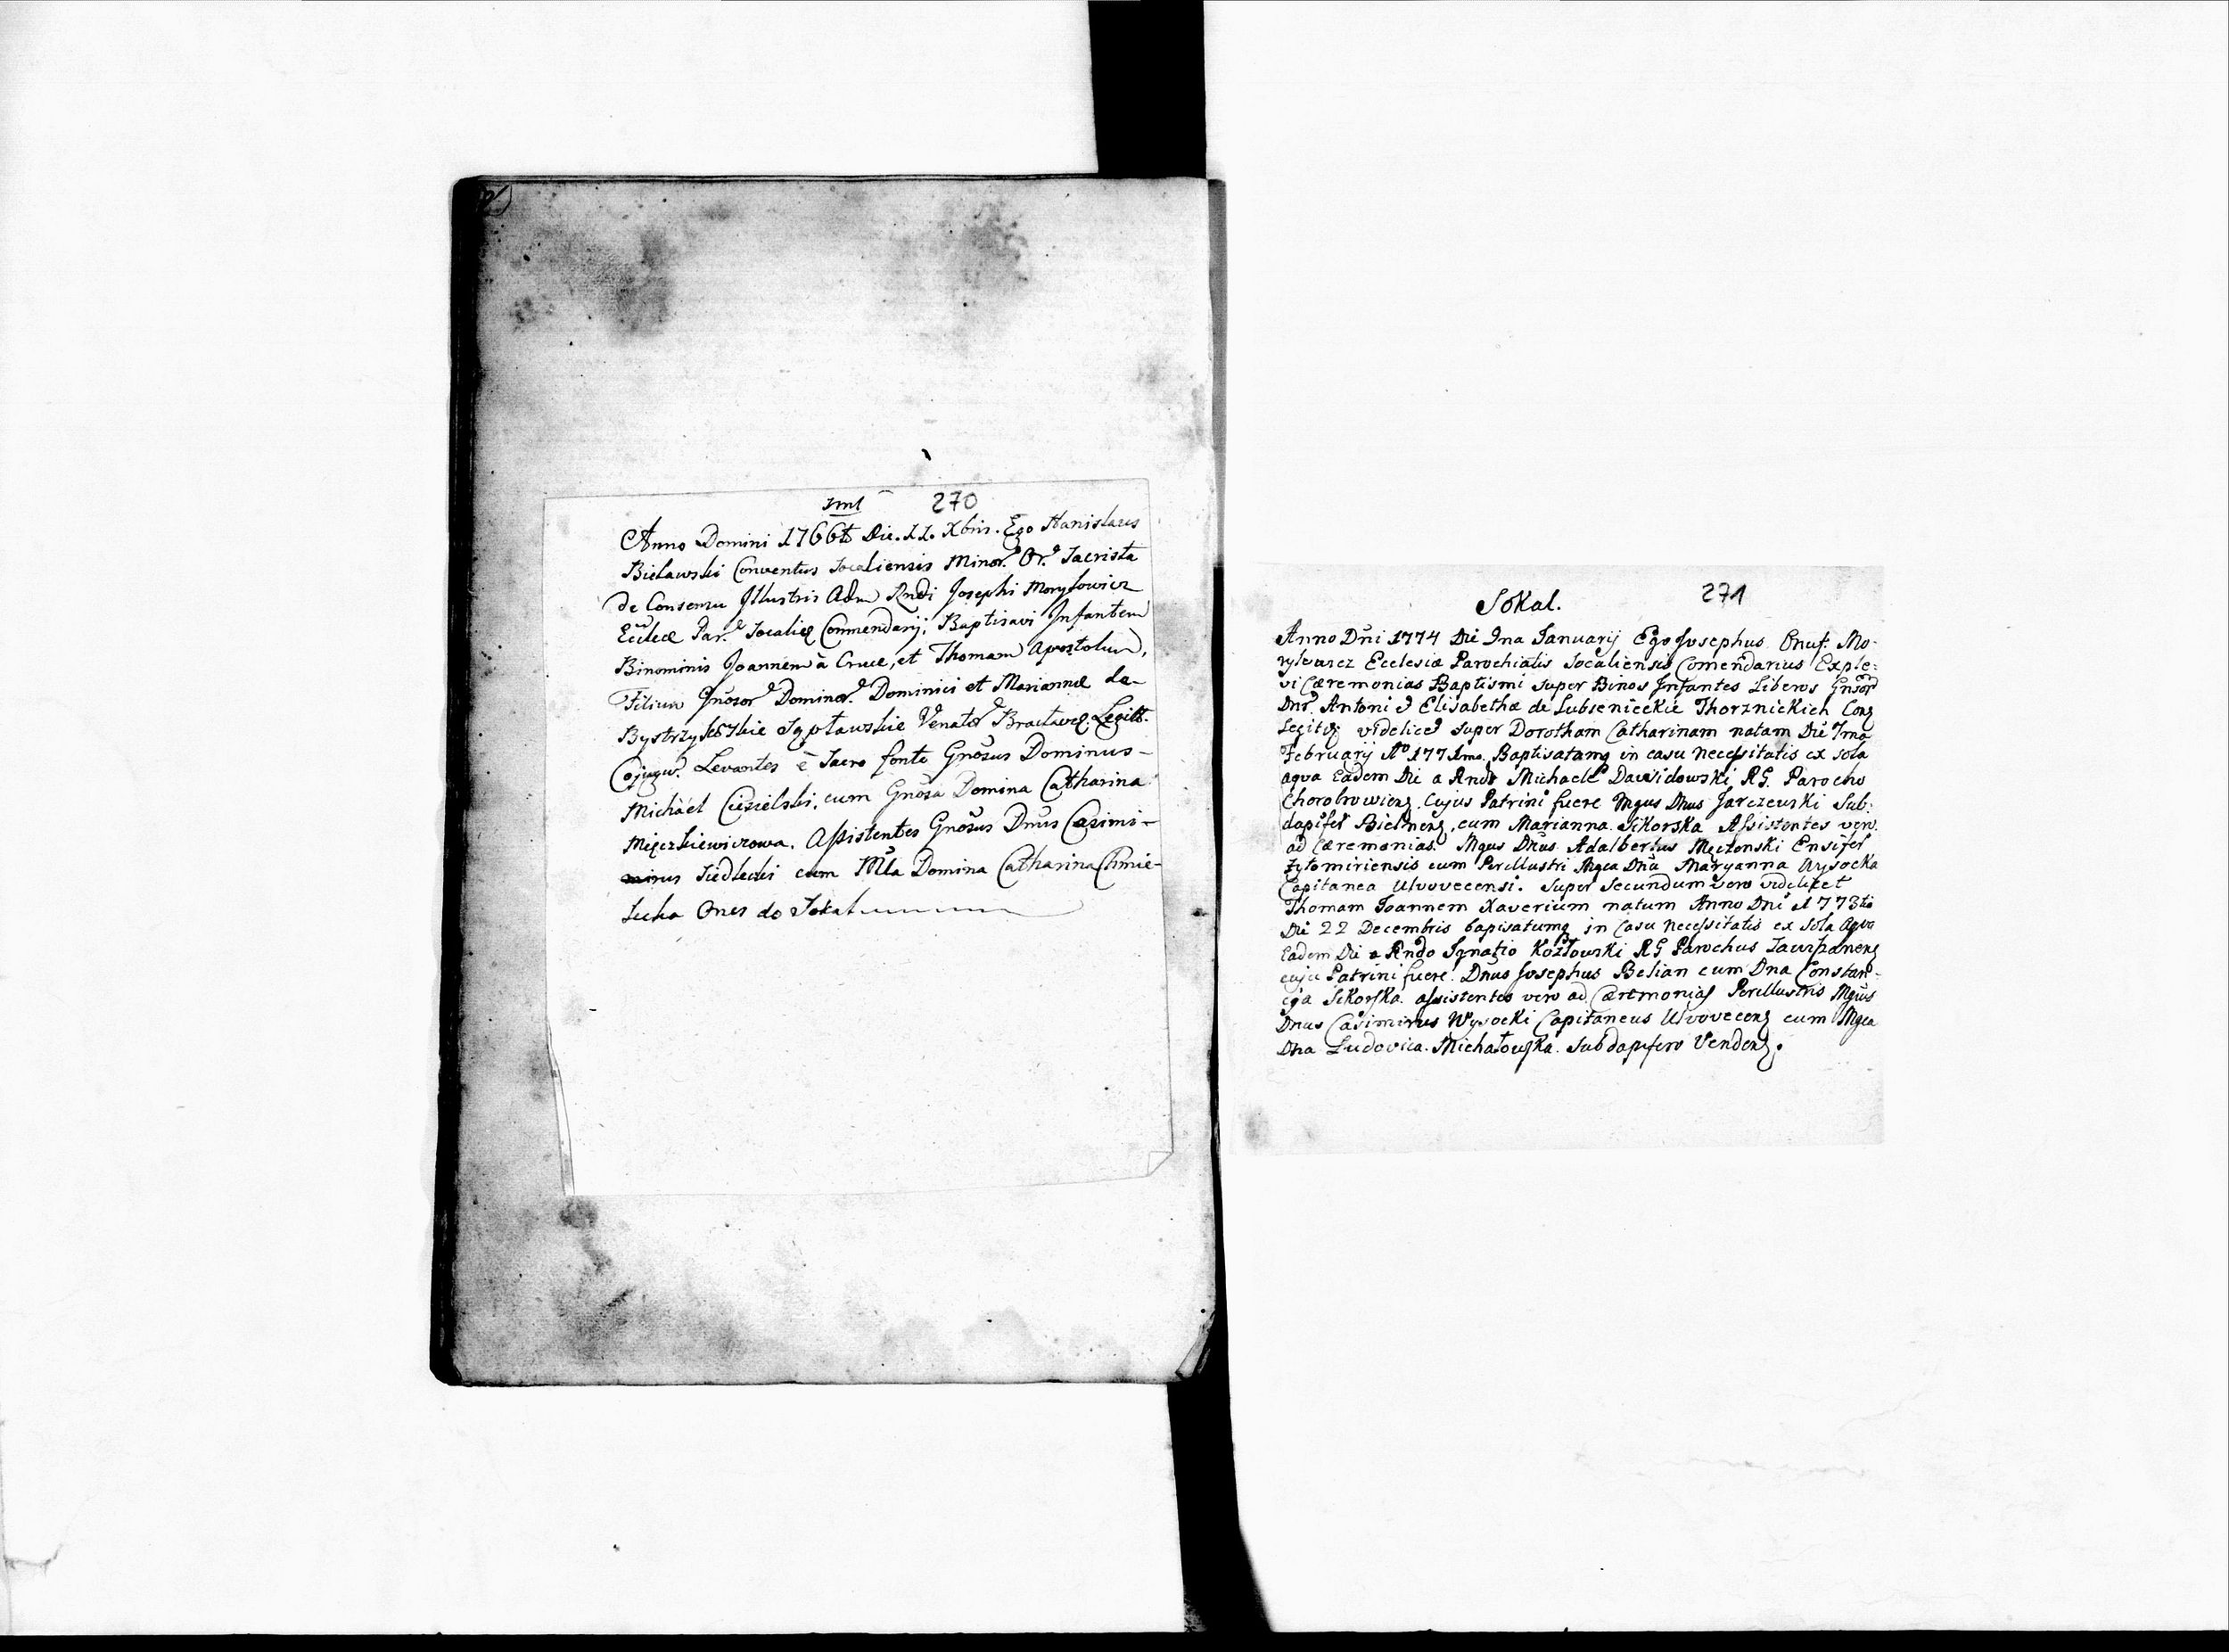 270
Anno Domini 1766to Die. 11. Xbris. Ego Stanislaus
Bielawski Conventus Socaliensis Minor. Or. Sacrista
de Consensu Illustris Adm Rndi Josephi Morylowicz
Eccleæ Par. Socalien Commendarij; Baptisavi Infantem
Binominis Joannem à Cruce, et Thomam Apostolum,
Filium Gnosor Dominor. Dominici et Mariannæ de
Venator Braclavien: Legitt.
Cojugu. Levantes è Sacro fonte Gnosus Dominus -
Michäel Ciesielski, cum Gnosa Domina Catharina
Mięczkiewiczowa. Assistentes Gnosus Dnus Casimi-
rus Siedlecki cum Mla Domina Catharina Chmie-
lecka Ones de Sokal
271
Sokal.
Anno Dni 1774 Die Ina Januarij Ego Josephus Onuf. Mo-
rylewicz Ecclesiæ Parochialis Socaliensis Comendarius Exple-
vi Cæremonias Baptismi super Binos Infantes Liberos Gnsor
Dnr. Antoni & Elisabethæ de Lubienieckie Thorznickich Conz
Legitz videlicet super Dorotham Catharinam natam Die Ima
Februarij Ao 1771mo. Baptisatamq in casu necessitatis ex sola
aqva eadem Die a Rndo Michaele Dawidowski RG. Parocho
Chorobrowienz. Cujus Patrini fuere Mgus Dnus Jarczewski Sub-
dapifer Bielsnenz, cum Marianna Sikorska Assistentes vero
ad Cæremonias. Mgus Dnus Adalbertus Męczenski Ensifer
Zytomiriensis cum Perillustri Mgca Dna Maryanna Wysocka
Capitanea Ulvovecensi. Super Secundum vero videlicet
Thomam Joannem Xaverium natum Anno Dni 1773tio
Die 22 Decembris bapisatumq in Casu necessitatis ex sola Aqva
Eadem Die a Rndo Ignatio Kozłowski RG Parochus
cuju Patrini fuere. Dnus Josephus Belian cum Dna Constan-
cya Sikorska. assistentes vero ad Cæremonias Perillustris Mgus
Dnus Casimirus Wysocki Capitaneus Ulvovecenz cum Mgca
Dna Ludovica Michałowska. Subdapifero Vendenz.